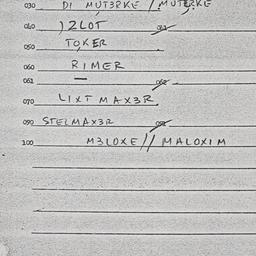 030 DI MUT3RKE / MUTERKE
040 )ZLOT 041
050 TOKER
060 RIMER
061 — 062
070 LIXTMAX3R
090 STELMAX3R 091
100 M3LOXE // MALOXIM